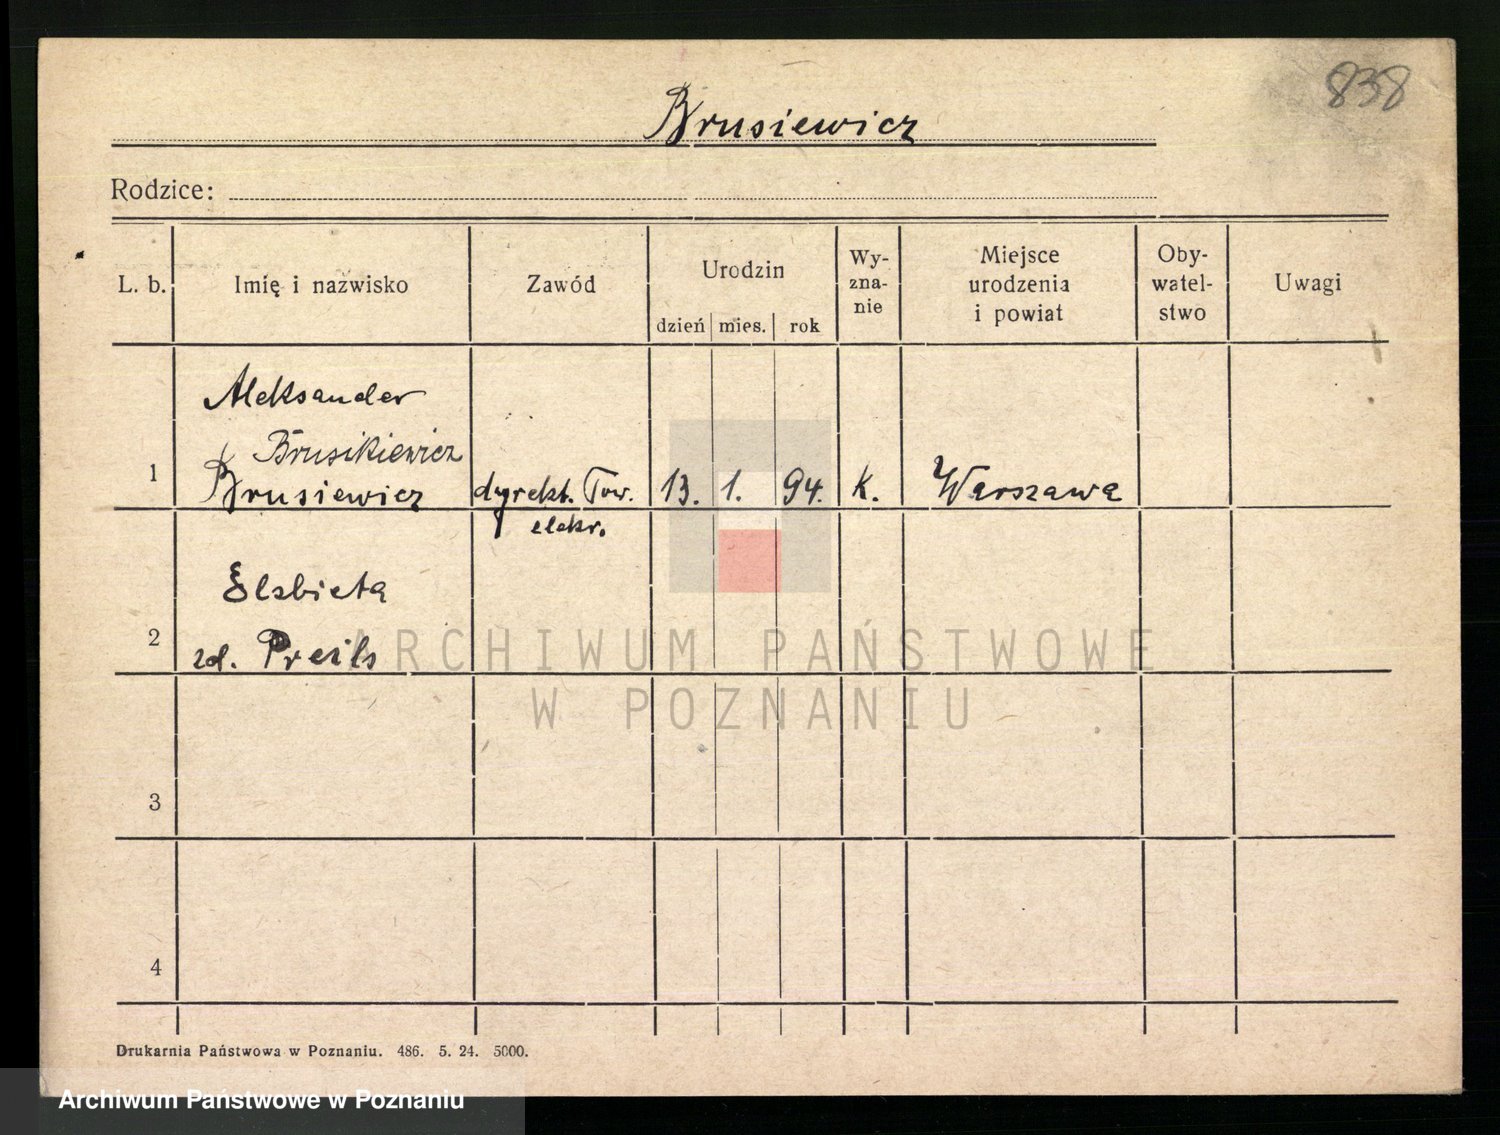 838
Brusiewicz
Rodzice:
L. b.
Imię i nazwisko
Zawód
Urodzin
dzień mies. rok
Wy-
zna-
nie
Miejsce
urodzenia
i powiat
Oby-
watel-
stwo
Uwagi
Aleksander
Brusikiewicz
1 Brusiewicz dyrekt. Tow. 13. 1. 94. K. Warszawa
elektr.
Elzbieta
2 zd.
3
4
ARCHIWUM PAŃSTWOWE
W POZNANIU
Drukarnia Państwowa w Poznaniu. 486. 5. 24. 5000.
Archiwum Państwowe w Poznaniu